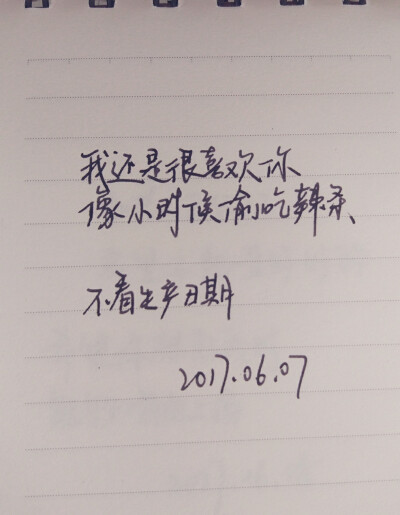 我还是很喜欢你
像小时候偷吃辣条、
不看生产日期
2017.06.07